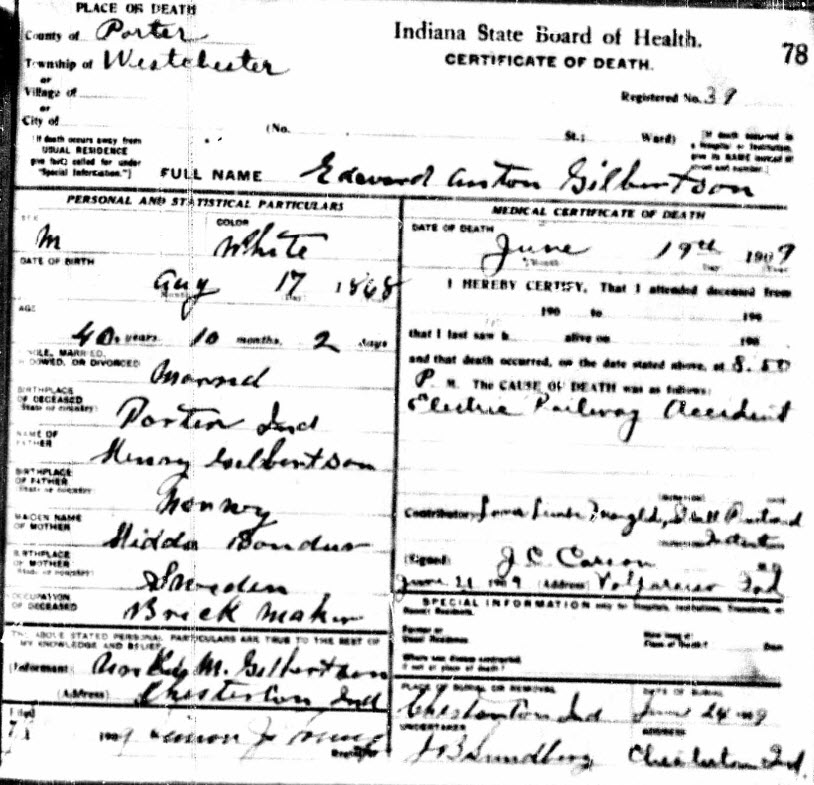 PLACE OF DEATH
County of Porter
Township of Westchester
or
Village of
or
City of
Indiana State Board of Health.
CERTIFICATE OF DEATH.
78
Registered No. 39
(No. St.; Ward)
[If death occurs away from
USUAL RESIDENCE
give facts called for under
"Special Information."]
[If death occurred in
a Hospital or Institution,
give its NAME instead of
street and number.]
FULL NAME Edward Anton Gilbertson
PERSONAL AND STATISTICAL PARTICULARS
SEX
M
COLOR
White
DATE OF BIRTH
Aug 17 1868
AGE
40 years 10 months, 2 days
SINGLE, MARRIED,
WIDOWED, OR DIVORCED
Married
BIRTHPLACE
OF DECEASED
State or country
Porter Ind
NAME OF
FATHER
Henry Gilbertson
BIRTHPLACE
OF FATHER
State or country
Norway
MAIDEN NAME
OF MOTHER
BIRTHPLACE
OF MOTHER
State or country
Sweden
OCCUPATION
OF DECEASED
Brick Maker
THE ABOVE STATED PERSONAL PARTICULARS ARE TRUE TO THE BEST OF
MY KNOWLEDGE AND BELIEF
(Informant) M. Gilbertson
(Address) Chesterton Ind
Filed
1909
Registrar
MEDICAL CERTIFICATE OF DEATH
DATE OF DEATH
June 19th 1909
Month Day Year
I HEREBY CERTIFY, That I attended deceased from
190 to 190
that I last saw h alive on 190
and that death occurred, on the date stated above, at 8.50
P. M. The CAUSE OF DEATH was as follows:
Electric Railway Accident
Contributory Skull
(Signed) J. C. Carson
June 21 1909 (Address) Valparaiso Ind
SPECIAL INFORMATION only for Hospitals, Institutions, Transients, or
Recent Residents.
Former or
Usual Residence
How long at
Place of Death? Days
Where was disease contracted,
if not at place of death?
PLACE OF BURIAL OR REMOVAL
Chesterton Ind
DATE OF BURIAL
June 24 1909
UNDERTAKER
J B Lundberg
ADDRESS
Chesterton Ind.